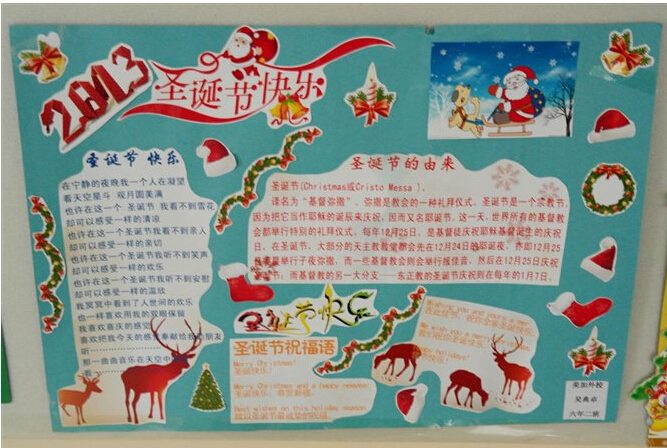 2013
圣诞节快乐
圣诞节 快乐
在宁静的夜晚我一个人在凝望
看天空星斗 观月圆美满
也许在这一个 圣诞节 我看不到雪花
却可以感受一样的清凉
也许在这一个圣诞节我看不到亲人
却可以感受一样的亲切
也许在这一个圣诞节我听不到笑声
却可以感受一样的欢乐
也许在这一个圣诞节我听不到安慰
却可以感受一样的温欣
我冥冥中看到了人世间的欢乐
也一样喜欢用我的双眼保留
我喜欢喜庆的感觉
喜欢把我今天的感觉奉献给我的朋友
听
那一曲曲音乐在天空中
看
圣诞节的由来
圣诞节(Christmas或Cristo Messa ),
译名为“基督弥撒”。弥撒是教会的一种礼拜仪式。圣诞节是一个宗教节，
因为把它当作耶稣的诞辰来庆祝，因而又名耶诞节。这一天，世界所有的基督教
会都举行特别的礼拜仪式。每年12月25日，是基督徒庆祝耶稣基督诞生的庆祝
日。在圣诞节，大部分的天主教教堂都会先在12月24日的耶诞夜，亦即12月25
举行子夜弥撒，而一些基督教会则会举行报佳音，然后在12月25日庆祝
节；而基督教的另一大分支——东正教的圣诞节庆祝则在每年的1月7日。
圣诞节快乐
圣诞节祝福语
Merry Christmas!
圣诞快乐!
Merry Christmas and a happy newyear
圣诞快乐，恭贺新禧。
Best wishes on this holiday season
Wishing you and yours a mer
We wish you a merry Christmas
holidays!
美加外校
吴典卓
六年二班